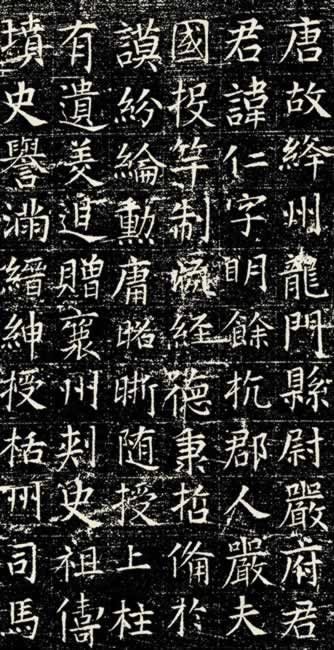 唐故絳州龍門縣尉嚴府君
君諱仁字明餘杭郡人嚴夫
國投竿制經德秉哲俻於
謨紛綸勳庸昭晣随授上柱
有遺美迨贈襄州刾史祖儔
墳史譽滿縉紳授栝州司馬